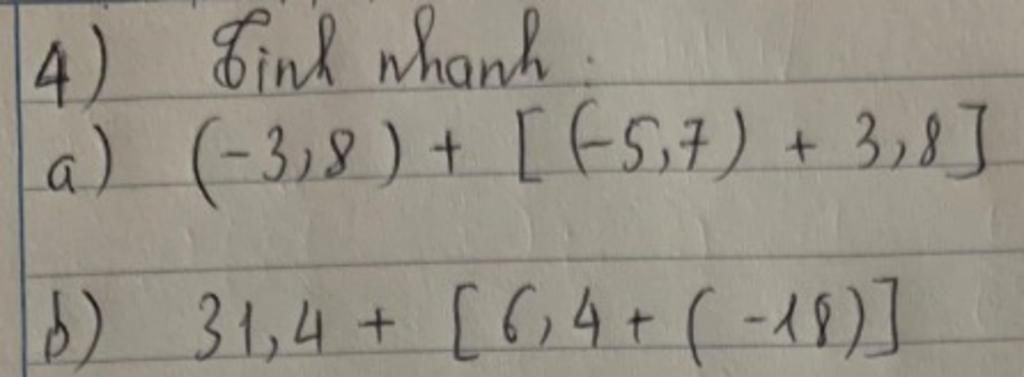 4) Tính nhanh:
a) (-3,8) + [(-5,7) + 3,8]
b) 31,4 + [6,4 + (-18)]